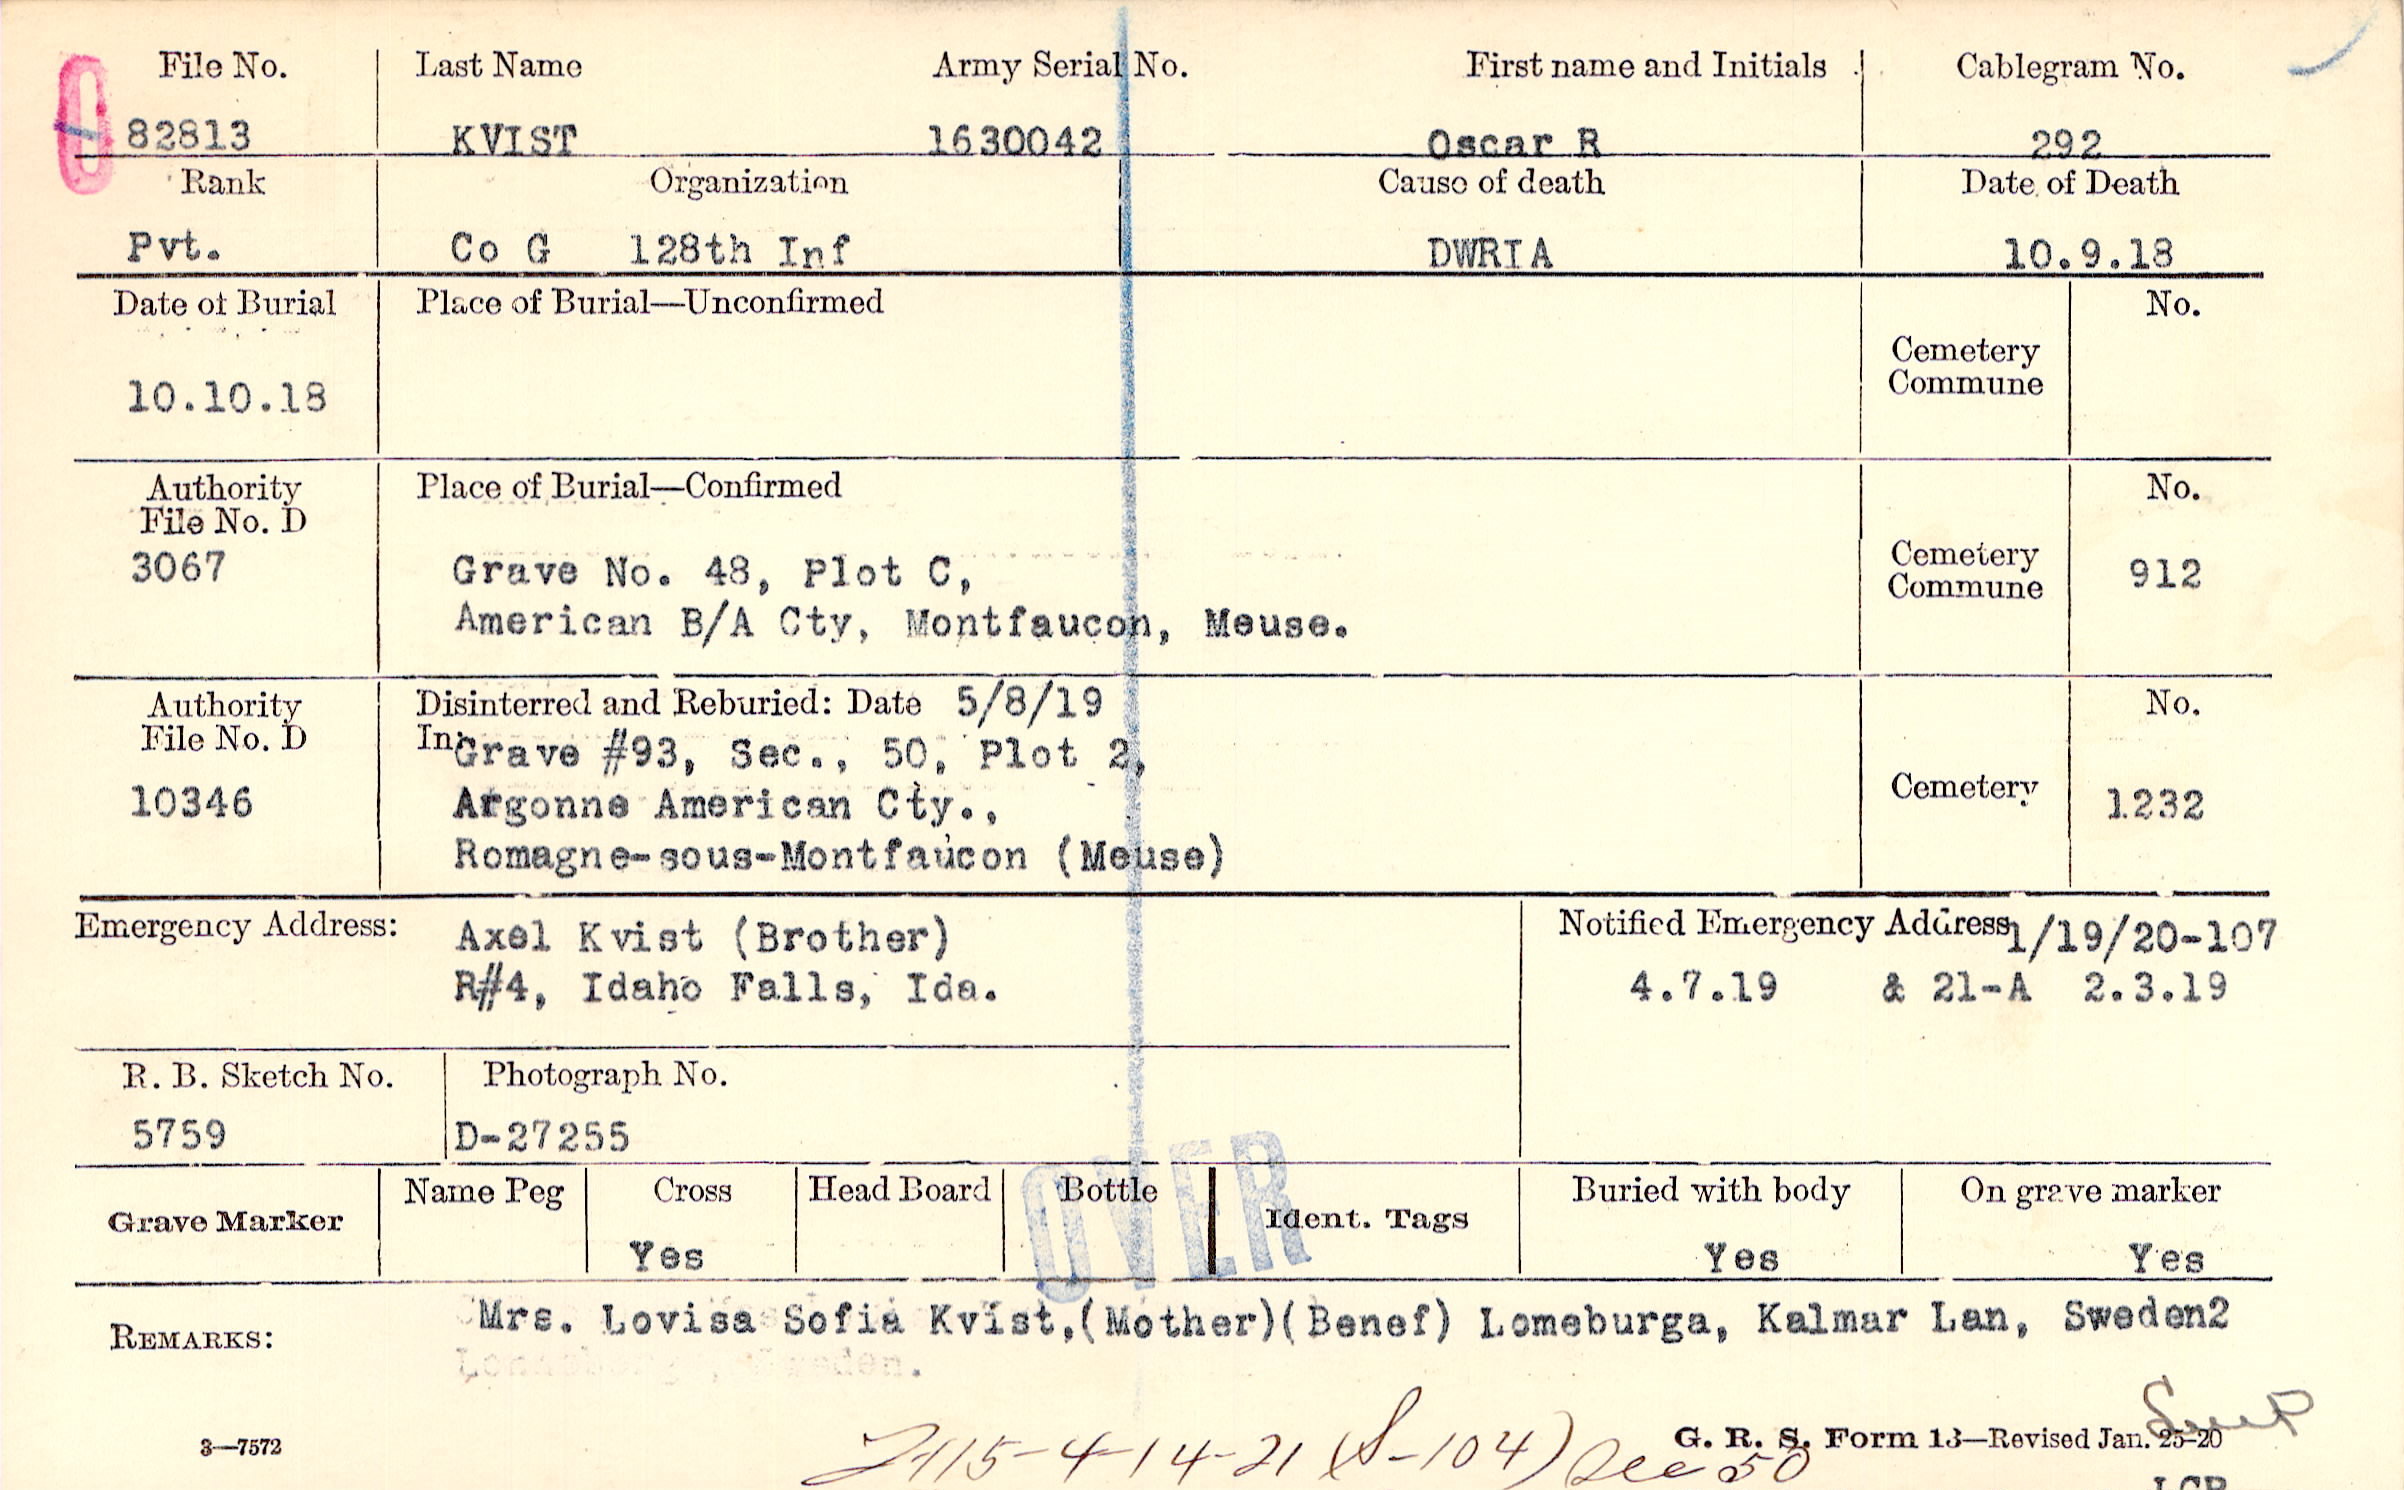 File No. Last Name Army Serial No. First name and Initials Cablegram No.
82813 KVIST 1630042 Oscar R 292
Rank Organization Cause of death Date of Death
Pvt. Co G 128th Inf DWRIA 10.9.18
Date of Burial Place of Burial—Unconfirmed No.
Cemetery
Commune
10.10.18
Authority Place of Burial—Confirmed No.
File No. D
3067 Grave No. 48, Plot C, Cemetery Commune 912
American B/A Cty, Montfaucon, Meuse.
Authority Disinterred and Reburied: Date 5/8/19 No.
File No. D In: Grave #93, Sec., 50, Plot 2,
10346 Argonne American Cty., Cemetery 1232
Romagne-sous-Montfaucon (Meuse)
Emergency Address: Axel Kvist (Brother) Notified Emergency Address 1/19/20-107
R#4, Idaho Falls, Ida. 4.7.19 & 21-A 2.3.19
R. B. Sketch No. Photograph No.
5759 D-27255
OVER
Grave Marker Name Peg Cross Head Board Bottle Ident. Tags Buried with body On grave marker
Yes Yes Yes
REMARKS: Mrs. Lovisa Sofia Kvist,(Mother)(Benef) Lomeburga, Kalmar Lan, Sweden2
3—7572 G. R. S. Form 13—Revised Jan. 25-20
115-4-14-21 (S-104) Sec 50